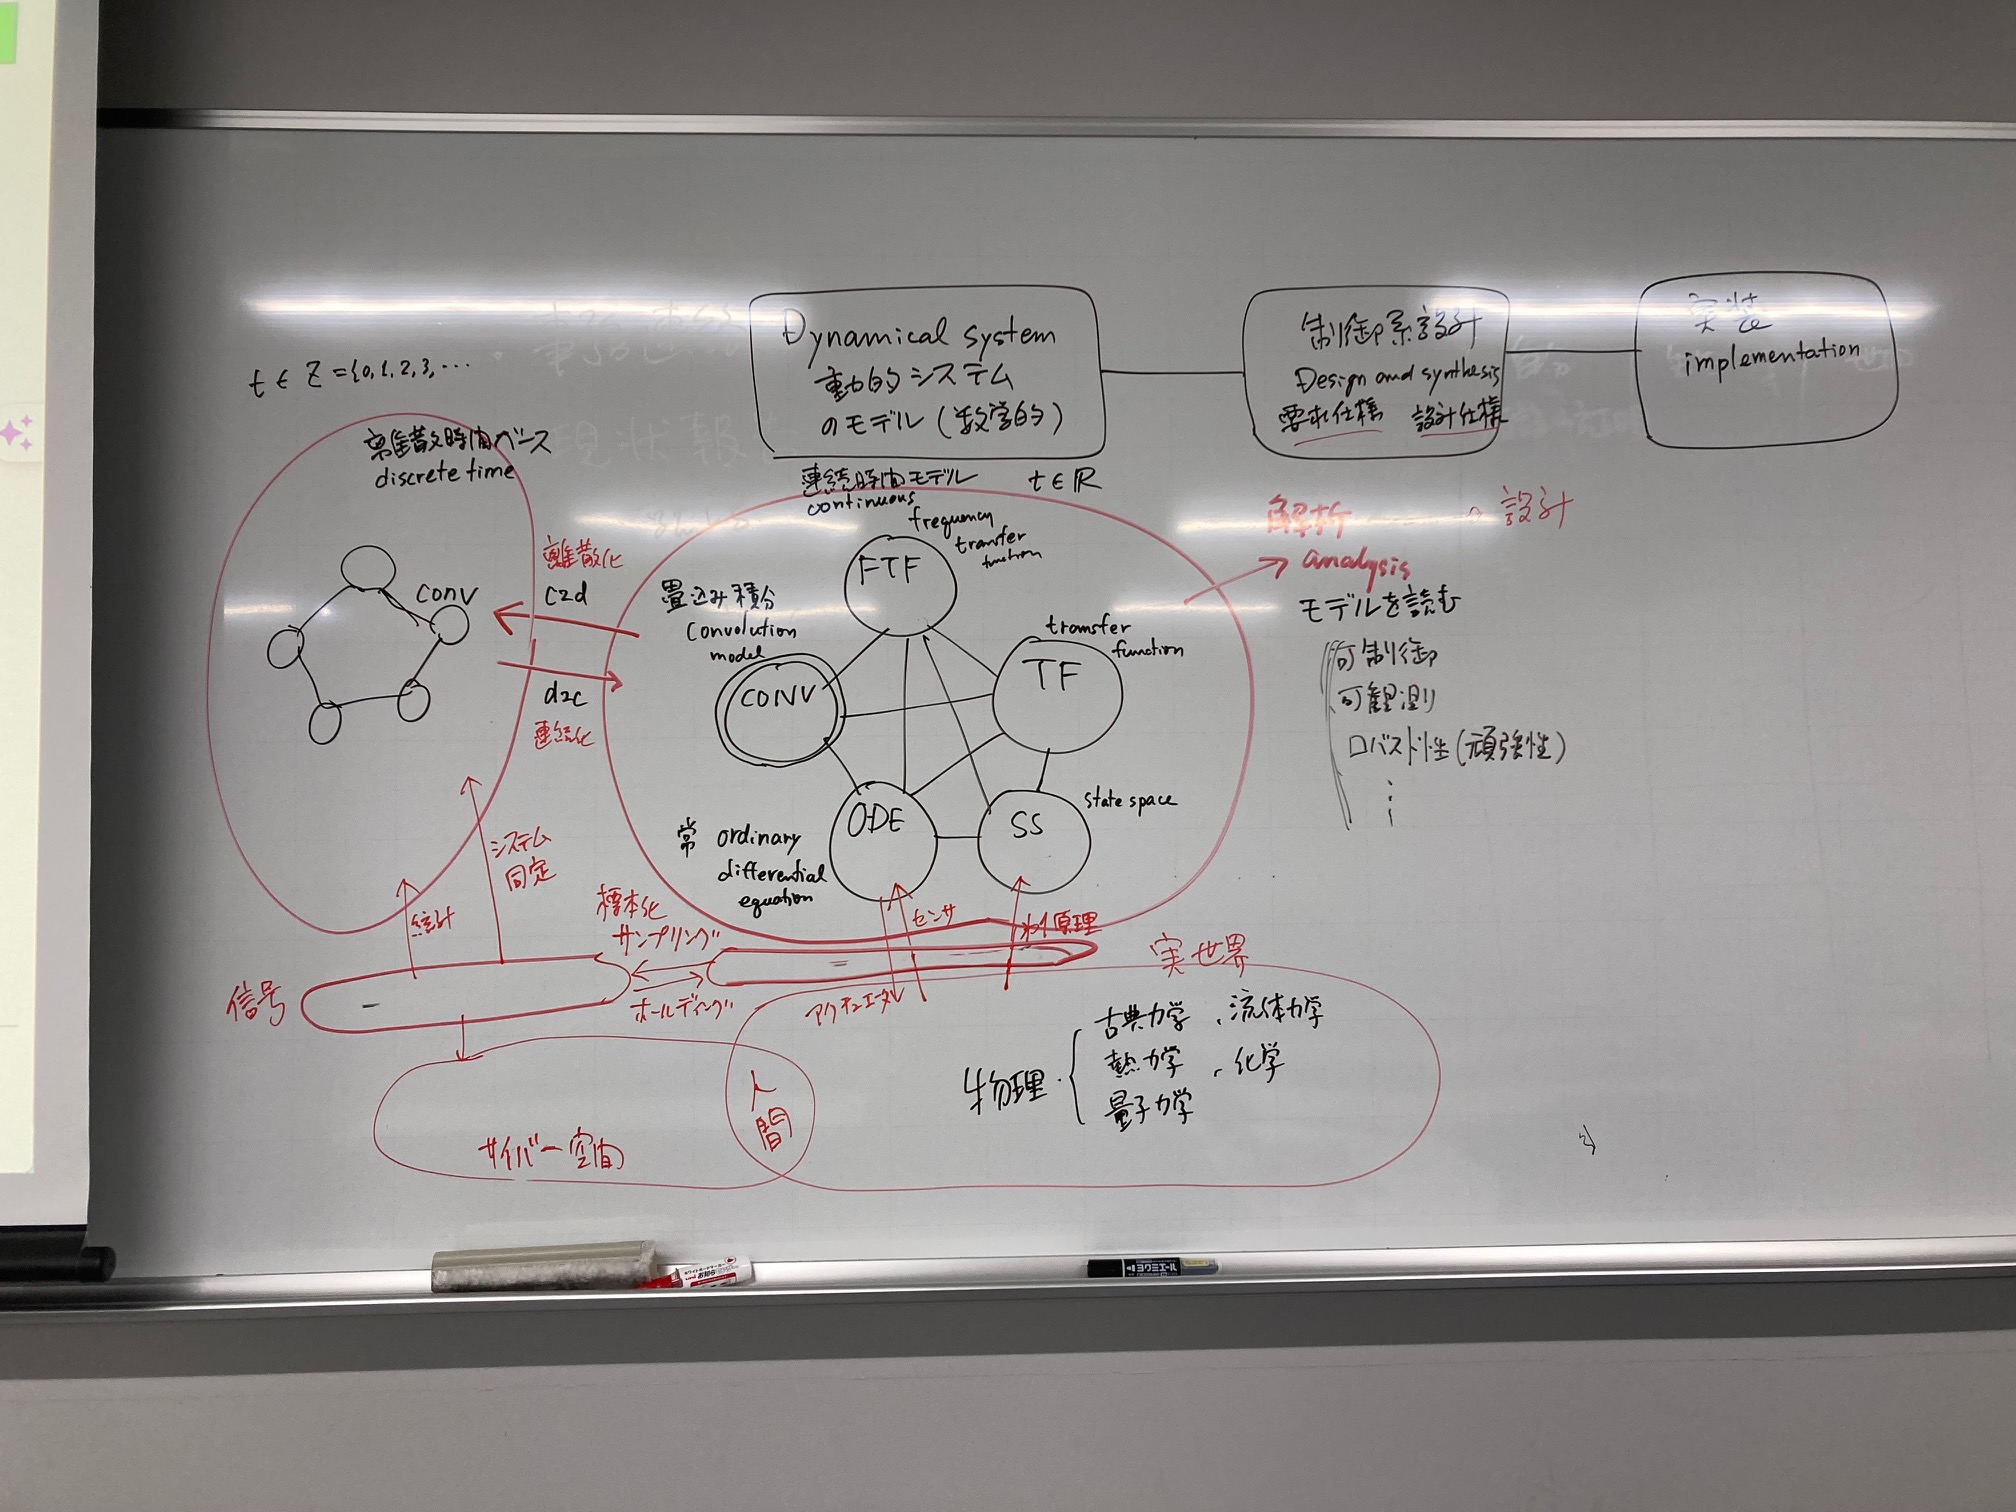 Dynamical system
動的システム
のモデル(数学的)
制御系設計
Design and synthesis
要求仕様 設計仕様
実装
implementation
t ∈ Z = {0, 1, 2, 3, ...
離散時間ベース
discrete time
conv
離散化
c2d
d2c
連続化
連続時間モデル t ∈ ℝ
continuous
frequency
transfer
function
FTF
畳込み積分
convolution
model
CONV
transfer
function
TF
常 ordinary
differential
equation
ODE
state space
SS
解析 設計
analysis
モデルを読む
可制御
可観測
ロバスト性(頑強性)
⋮
統計
システム
同定
標本化
サンプリング
ホールディング
信号
センサ
アクチュエータ
原理
実世界
物理
古典力学、流体力学
熱力学、化学
量子力学
人間
サイバー空間
現状報
ヨクミエール